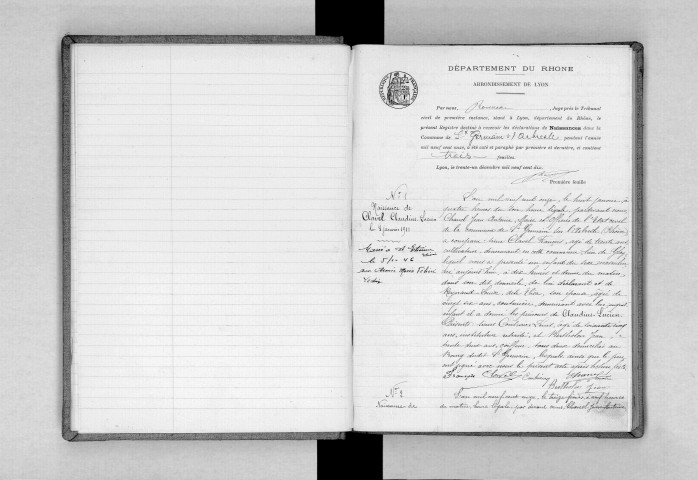 DÉPARTEMENT DU RHONE
ARRONDISSEMENT DE LYON
Par nous, Juge près le Tribunal
civil de première instance, séant à Lyon, département du Rhône, le
présent Registre destiné à recevoir les déclarations de Naissances dans la
Commune de St Germain s/ l'Arbresle pendant l'année
mil neuf cent onze, a été coté et paraphé par première et dernière, et contient
feuilles.
Lyon, le trente-un décembre mil neuf cent dix.
Première feuille
No 1
Naissance de
Clavel Claudius Lucien
le 8 janvier 1911
Marié à St Etienne
le
avec Marie
L'an mil neuf cent onze, le huit janvier, à
quatre heures du soir, heure légale, par devant nous
Chanel Jean Antoine, Maire et Officier de l'Etat civil
de la commune de St Germain sur l'Arbresle (Rhône)
a comparu : sieur Clavel François, agé de trente ans
cultivateur, demeurant en cette commune, lieu de
lequel nous a présenté un enfant du sexe masculin
né aujourd'hui, à dix heures et demie du matin,
dans son dit domicile, de lui déclarant et de
son épouse, agée de
vingt six ans, couturière, demeurant avec lui, auquel
enfant il a donné les prénoms de Claudius-Lucien.
Présents : sieurs Louis, agé de cinq
ans, instituteur retraité, et Berthelon Jean,
trente deux ans, coiffeur, tous deux domiciliés au
bourg dudit St Germain, lesquels ainsi que le père
ont signé avec nous le présent acte après lecture faite
François Clavel Chanel
No 2
Naissance de
L'an mil neuf cent onze, le treize janvier à neuf heures
du matin, heure légale, par devant nous Chanel Jean Antoine